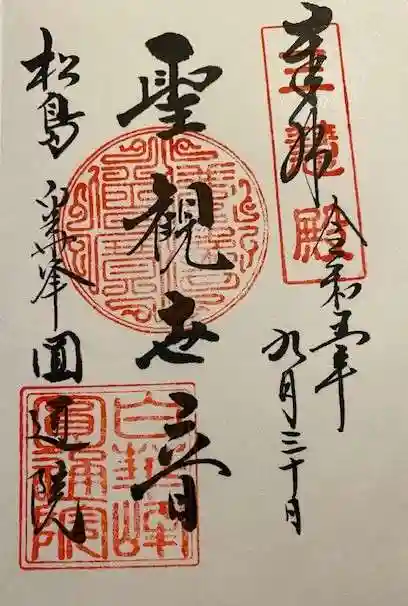 奉拝
三慧殿
令和五年
九月三十日
聖観世音
松島 白華峯 圓通院
白華峰
圓通院